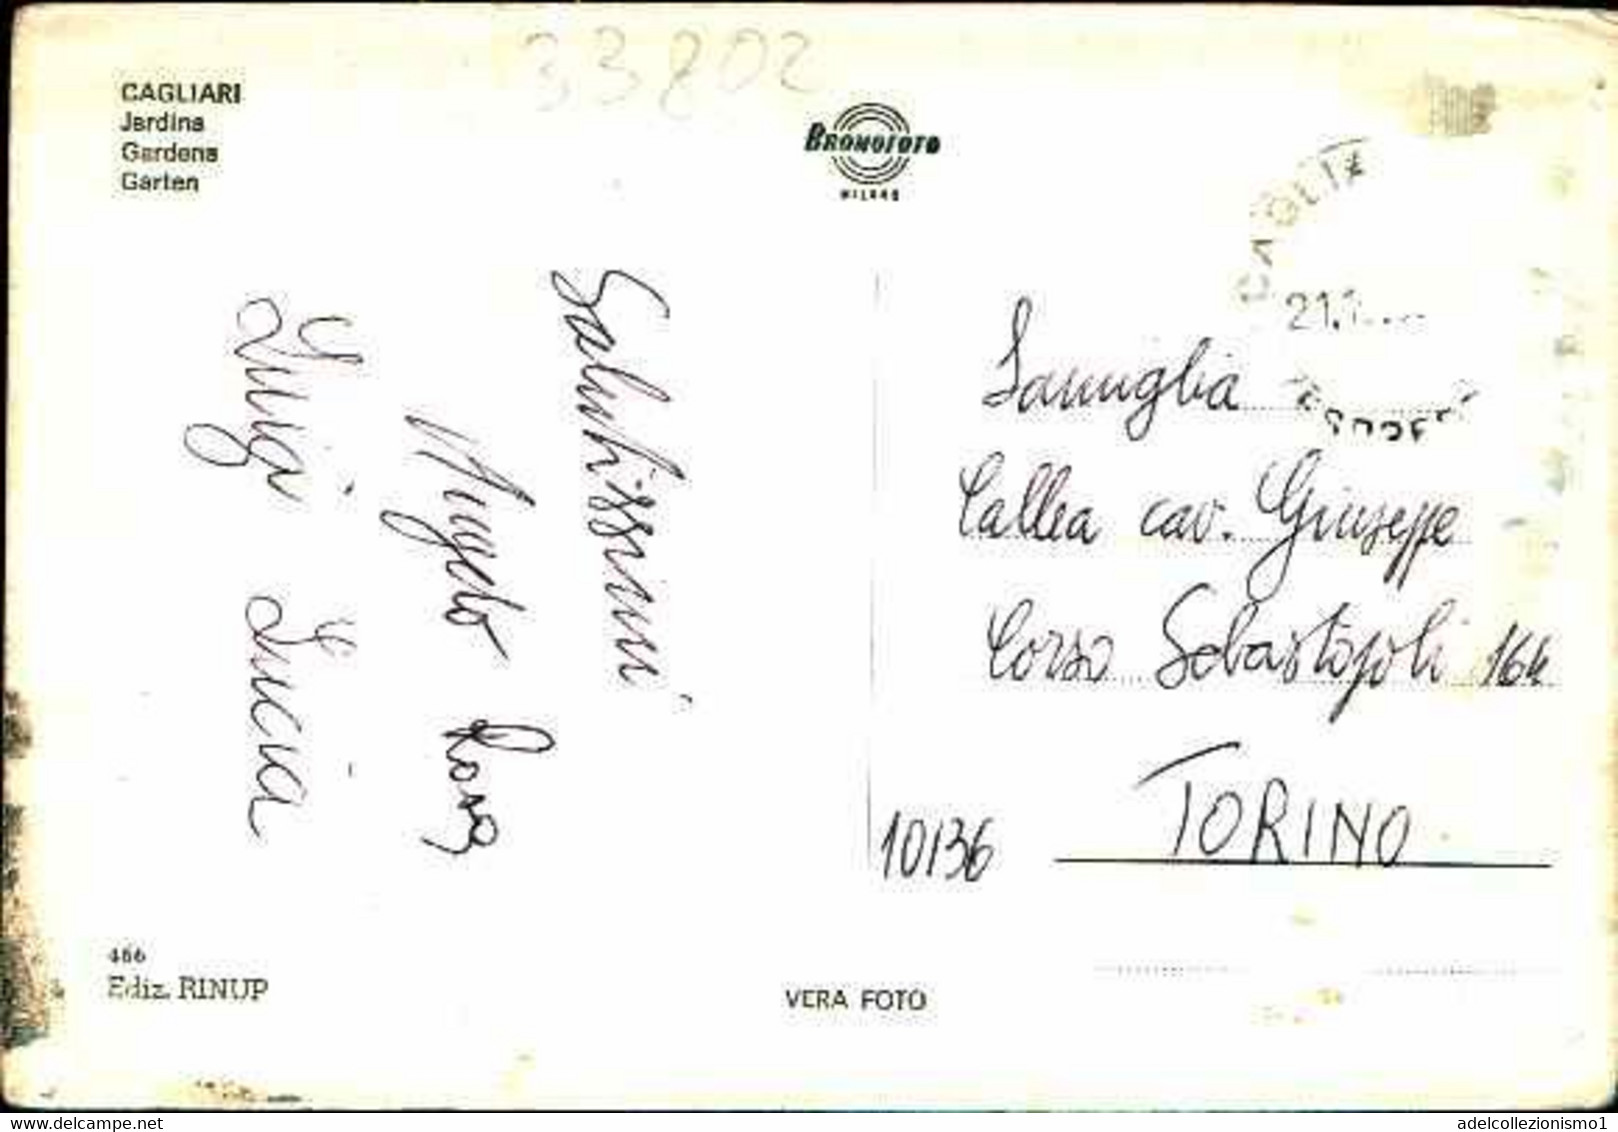 33802
CAGLIARI
Jardins
Gardens
Garten
BROMOFOTO
MILANO
CAGLIA
21.1
Salutissimi
Angelo Rosa
Luigi Lucia
Famiglia
Callea cav. Giuseppe
Corso Sebastopoli 164
10136 TORINO
466
Ediz. RINUP
VERA FOTO
www.delcampe.net
adelcollezionismo1